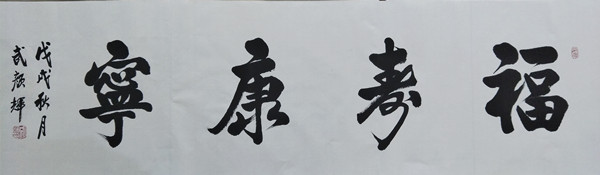 福寿康寧
戊戌秋月
武颜輝